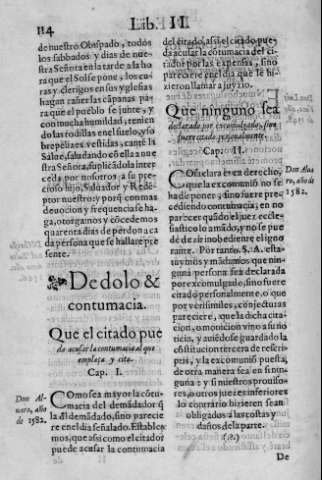 114
Lib. II.
de nuestro Obispado, todos
los sabbados y dias de nue-
stra Señora en la tarde a la ho
ra que el Sol se pone, los cu-
ras y clerigos en sus yglesias
hagan tañer las cãpanas pa-
ra que el pueblo se junte, y
con mucha humildad, tenien
do las rodillas en el suelo, y so
brepellizes vestidas, cantẽ la
Salue, saludando cõ ella a nue
stra Señora, suplicãdola inter
ceda por nosotros a su pre
cioso hijo, Saluador y Redẽ-
ptor nuestro: y porq̃ con mas
deuocion y frequencia se ha-
ga, otorgamos y cõcedemos
quarenta dias de perdon a ca
da persona que se hallare pre
sente.
De dolo &
contumacia.
Que el citado pue
da acusar la contumacia al que
emplaza y cita.
Cap. I.
Don Al-
uaro, año
de 1582.
COmo sea mayor la cõtu-
macia del demãdador q̃
la del demãdado, sino parecie
re en el dia señalado. Establece
mos, que asi como el citador
puede acusar la contumacia
del citado, asi el citado pue-
da acusar la cõtumacia del ci-
tador por las expensas, sino
pareciere en el dia que le hi-
zieron llamar a juyzio.
Que ninguno sea
declarado por excomulgado, sino
fuere citado personalmente.
Cap. II.
Don Alua
ro, año de
1582.
COsa clara es en derecho,
que la excomuniõ no se
ha de poner, sino fuere pre-
cediendo contumacia; en no
parecer quãdo el juez eccle-
siastico lo amãda, y no se pue
de dezir inobediente el igno
rante. Por tanto. S. A. esta-
tuymos y mãdamos que nin-
guna persona sea declarada
por excomulgado, sino fuere
citado personalmente, o que
por verisimiles, conjecturas
pareciere, que la dicha citac-
ion, o monicion vino a su no
ticia, y auiẽdose guardado la
cõstitucion tircera de rescri-
ptis, y la excomuniõ puesta,
de otra manera sea en si nin-
guna: y si nuestros prouiso-
res, o otros juezes inferiores
lo contrario hizieren sean
obligados a las costas y
daños de la parte.
De